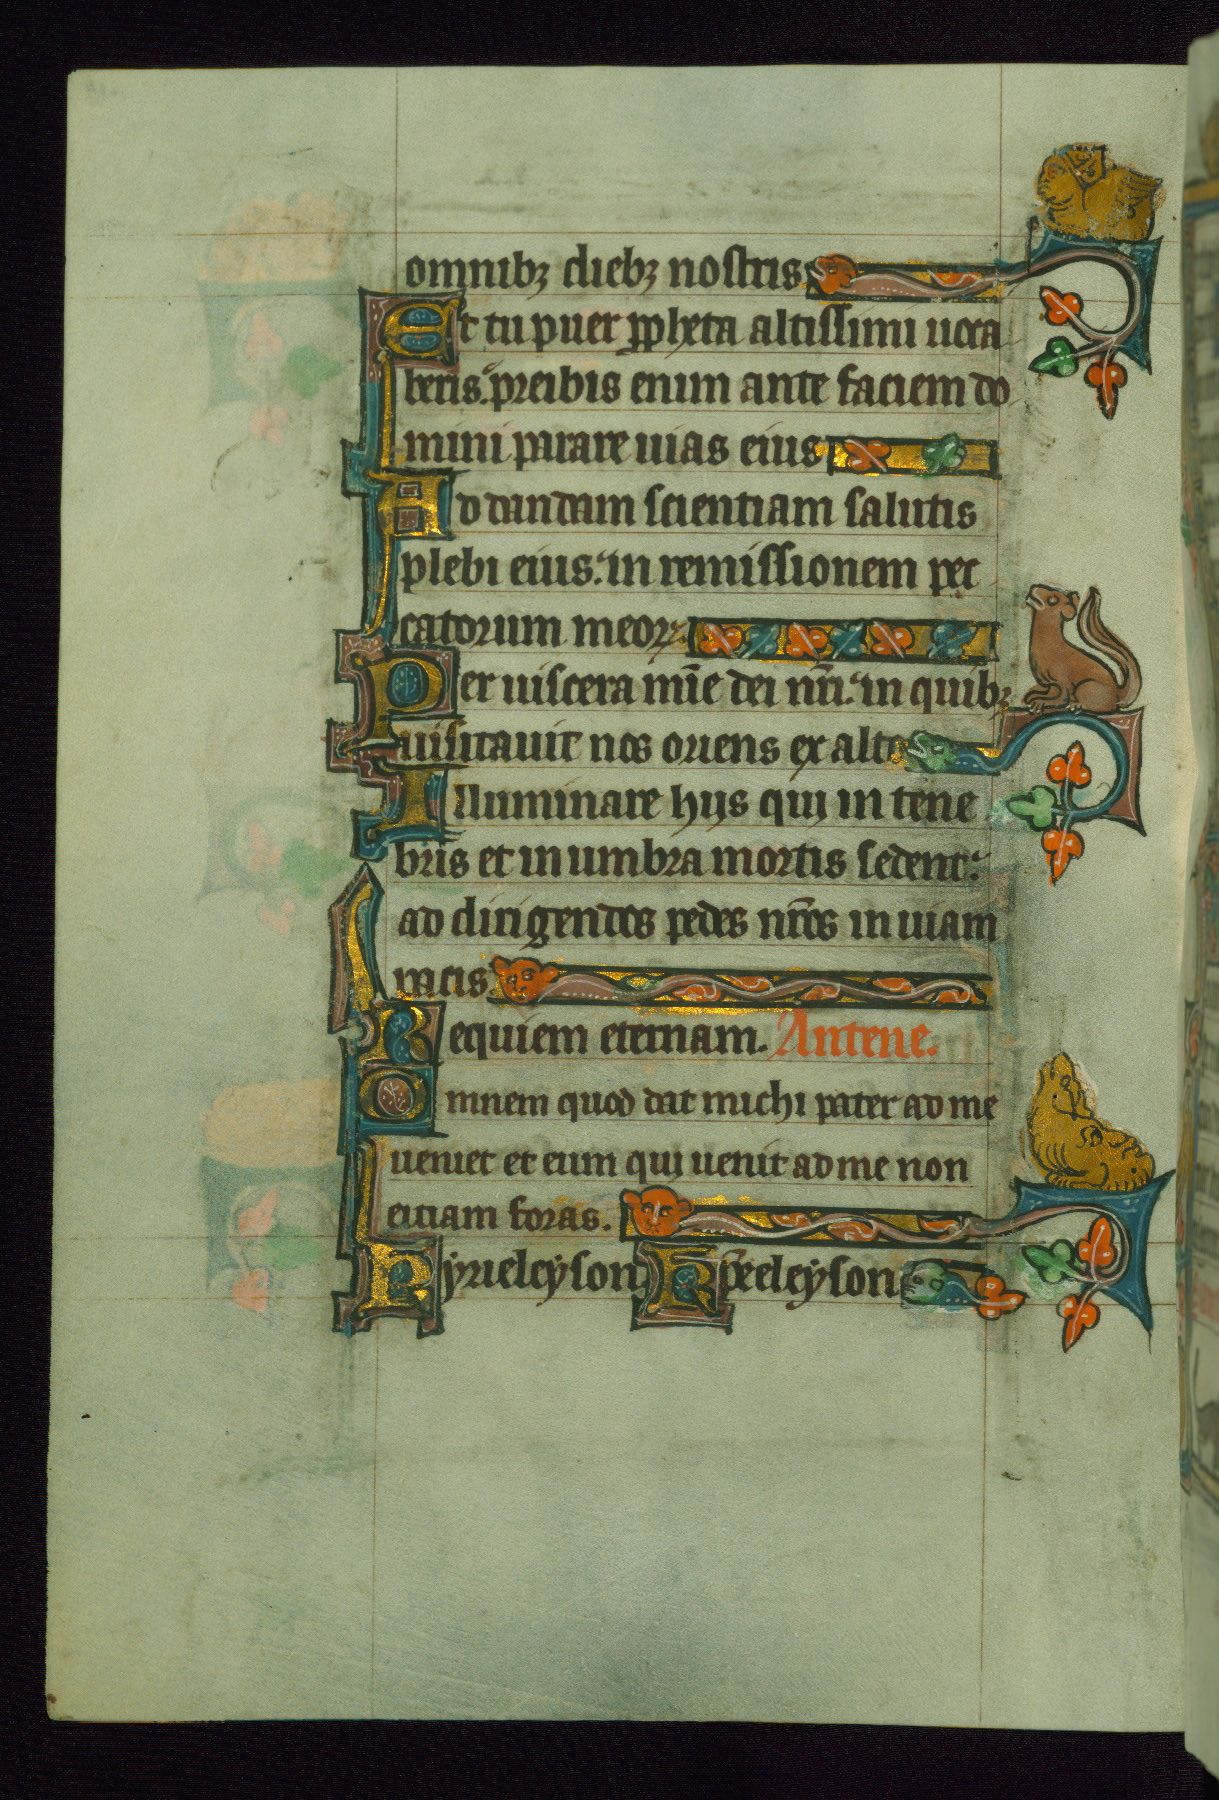 omnibꝫ diebꝫ nostris
Et tu puer ꝓpheta altissimi uoca
beris. preibis enim ante faciem do
mini parare uias eius
Ad dandam scientiam salutis
plebi eius. in remissionem pec
catorum meoꝝ.
Per uiscera mīe dei nr̄i. in quibꝫ
uisitauit nos oriens ex alto
Illuminare hijs qui in tene
bris et in umbra mortis sedent.
ad dirigendos pedes nr̄os in uiam
pacis.
Requiem eternam. Antene.
Omnem quod dat michi pater ad me
ueniet et eum qui uenit ad me non
eiciam foras.
Kyrieleyson Xp̄eeleyson